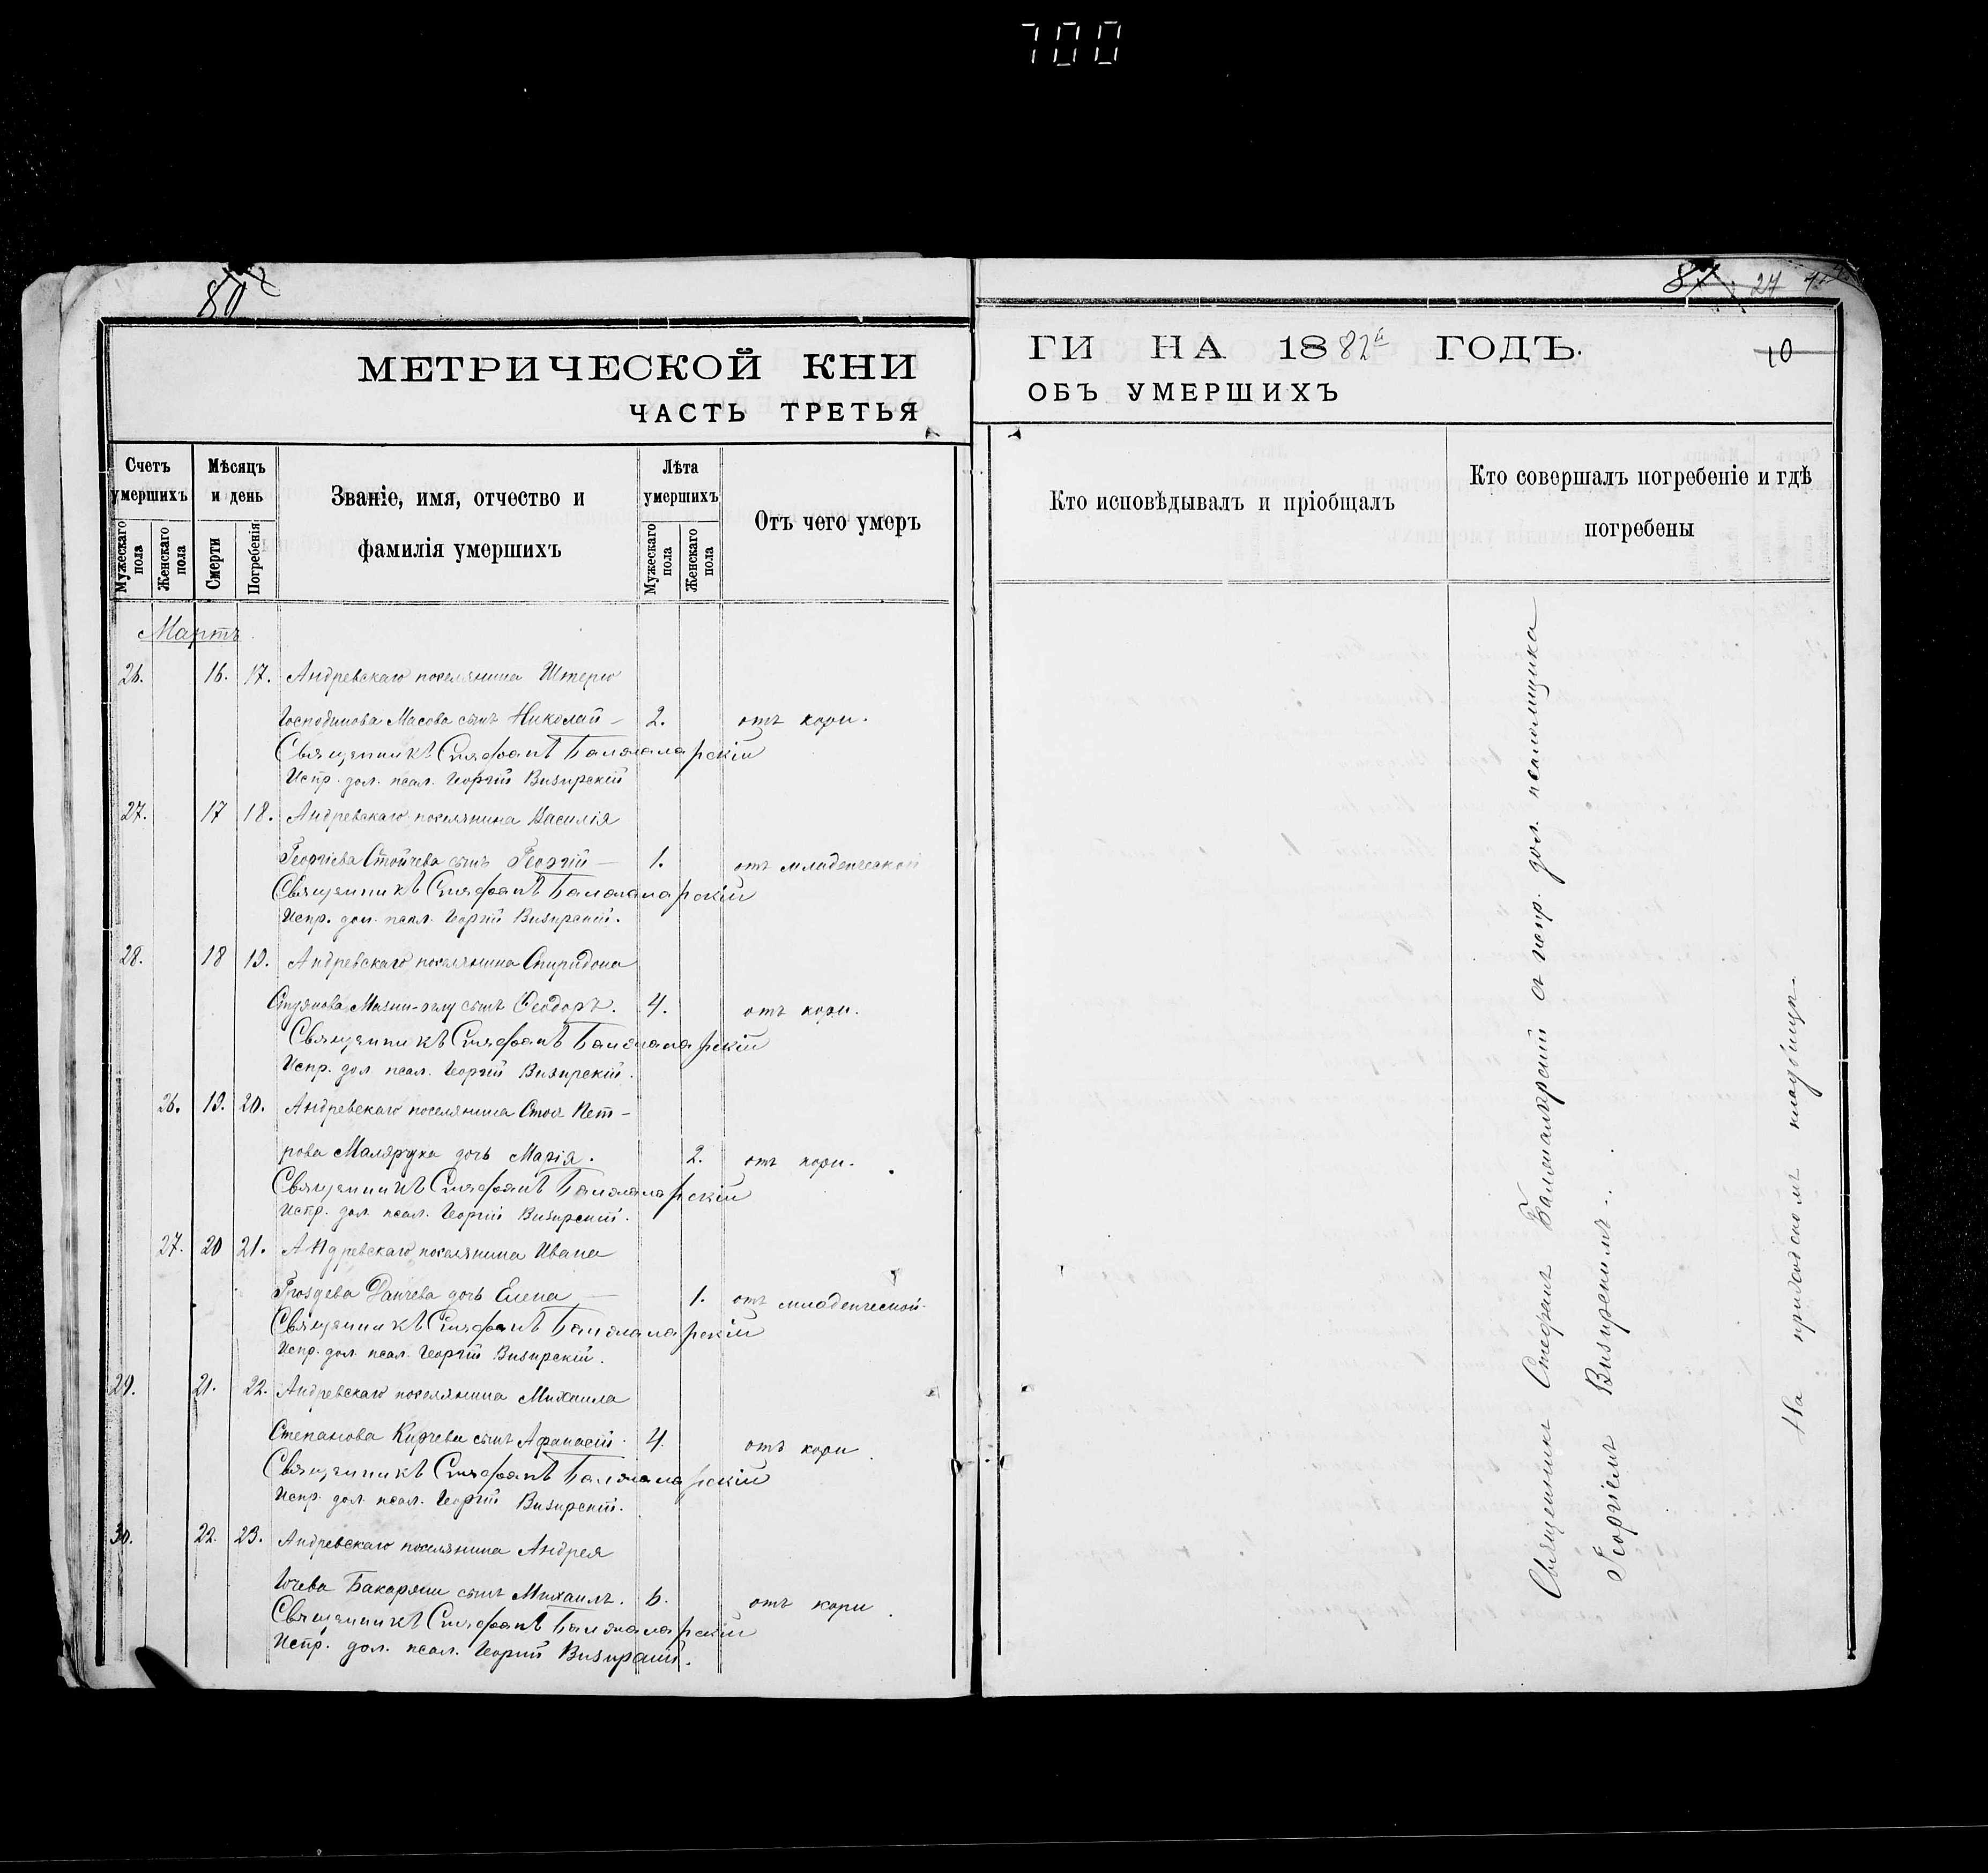 700
80
87
27
МЕТРИЧЕСКОЙ КНИ
ЧАСТЬ ТРЕТЬЯ
ГИ НА 1882й ГОДЪ.
10
ОБЪ УМЕРШИХЪ
Счетъ умершихъ
Мужескаго пола
Женскаго пола
Мѣсяцъ и день
Смерти
Погребенія
Званіе, имя, отчество и фамилія умершихъ
Лѣта умершихъ
Мужескаго пола
Женскаго пола
Отъ чего умеръ
Кто исповѣдывалъ и пріобщалъ
Кто совершалъ погребеніе и гдѣ погребены
Мартъ.
26. 16. 17. Андревскаго поселянина Штерю
Господинова Масова сынъ Николай – 2. отъ кори.
Священникъ Стефанъ Балмаларскій
Испр. дол. псал. Георгій Визирскій
27. 17 18. Андревскаго поселянина Василія
Георгіева Стойчева сынъ Георгій – 1. отъ младенческой
Священникъ Стефанъ Балмаларскій
Испр. дол. псал. Георгій Визирскій.
28. 18 19. Андревскаго поселянина Спиридона
сынъ Ѳеодоръ. 4. отъ кори.
Священникъ Стефанъ Балмаларскій
Испр. дол. псал. Георгій Визирскій.
26. 19. 20. Андревскаго поселянина Стоя Пет-
рова Малярука дочь Марія. 2. отъ кори.
Священникъ Стефанъ Балмаларскій
Испр. дол. псал. Георгій Визирскій.
27. 20 21. Андревскаго поселянина Ивана
Гроздева Данчева дочь Елена – 1. отъ младенческой.
Священникъ Стефанъ Балмаларскій
Испр. дол. псал. Георгій Визирскій.
29. 21. 22. Андревскаго поселянина Михаила
Степанова Кирчева сынъ Афанасій. 4. отъ кори.
Священникъ Стефанъ Балмаларскій
Испр. дол. псал. Георгій Визирскій.
30. 22. 23. Андревскаго поселянина Андрея
сынъ Михаилъ. 6. отъ кори.
Священникъ Стефанъ Балмаларскій
Испр. дол. псал. Георгій Визирскій.
Священникъ Стефанъ Балмаларскій съ испр. дол. псаломщика
Георгіемъ Визирскимъ.
На приходскомъ кладбищѣ.